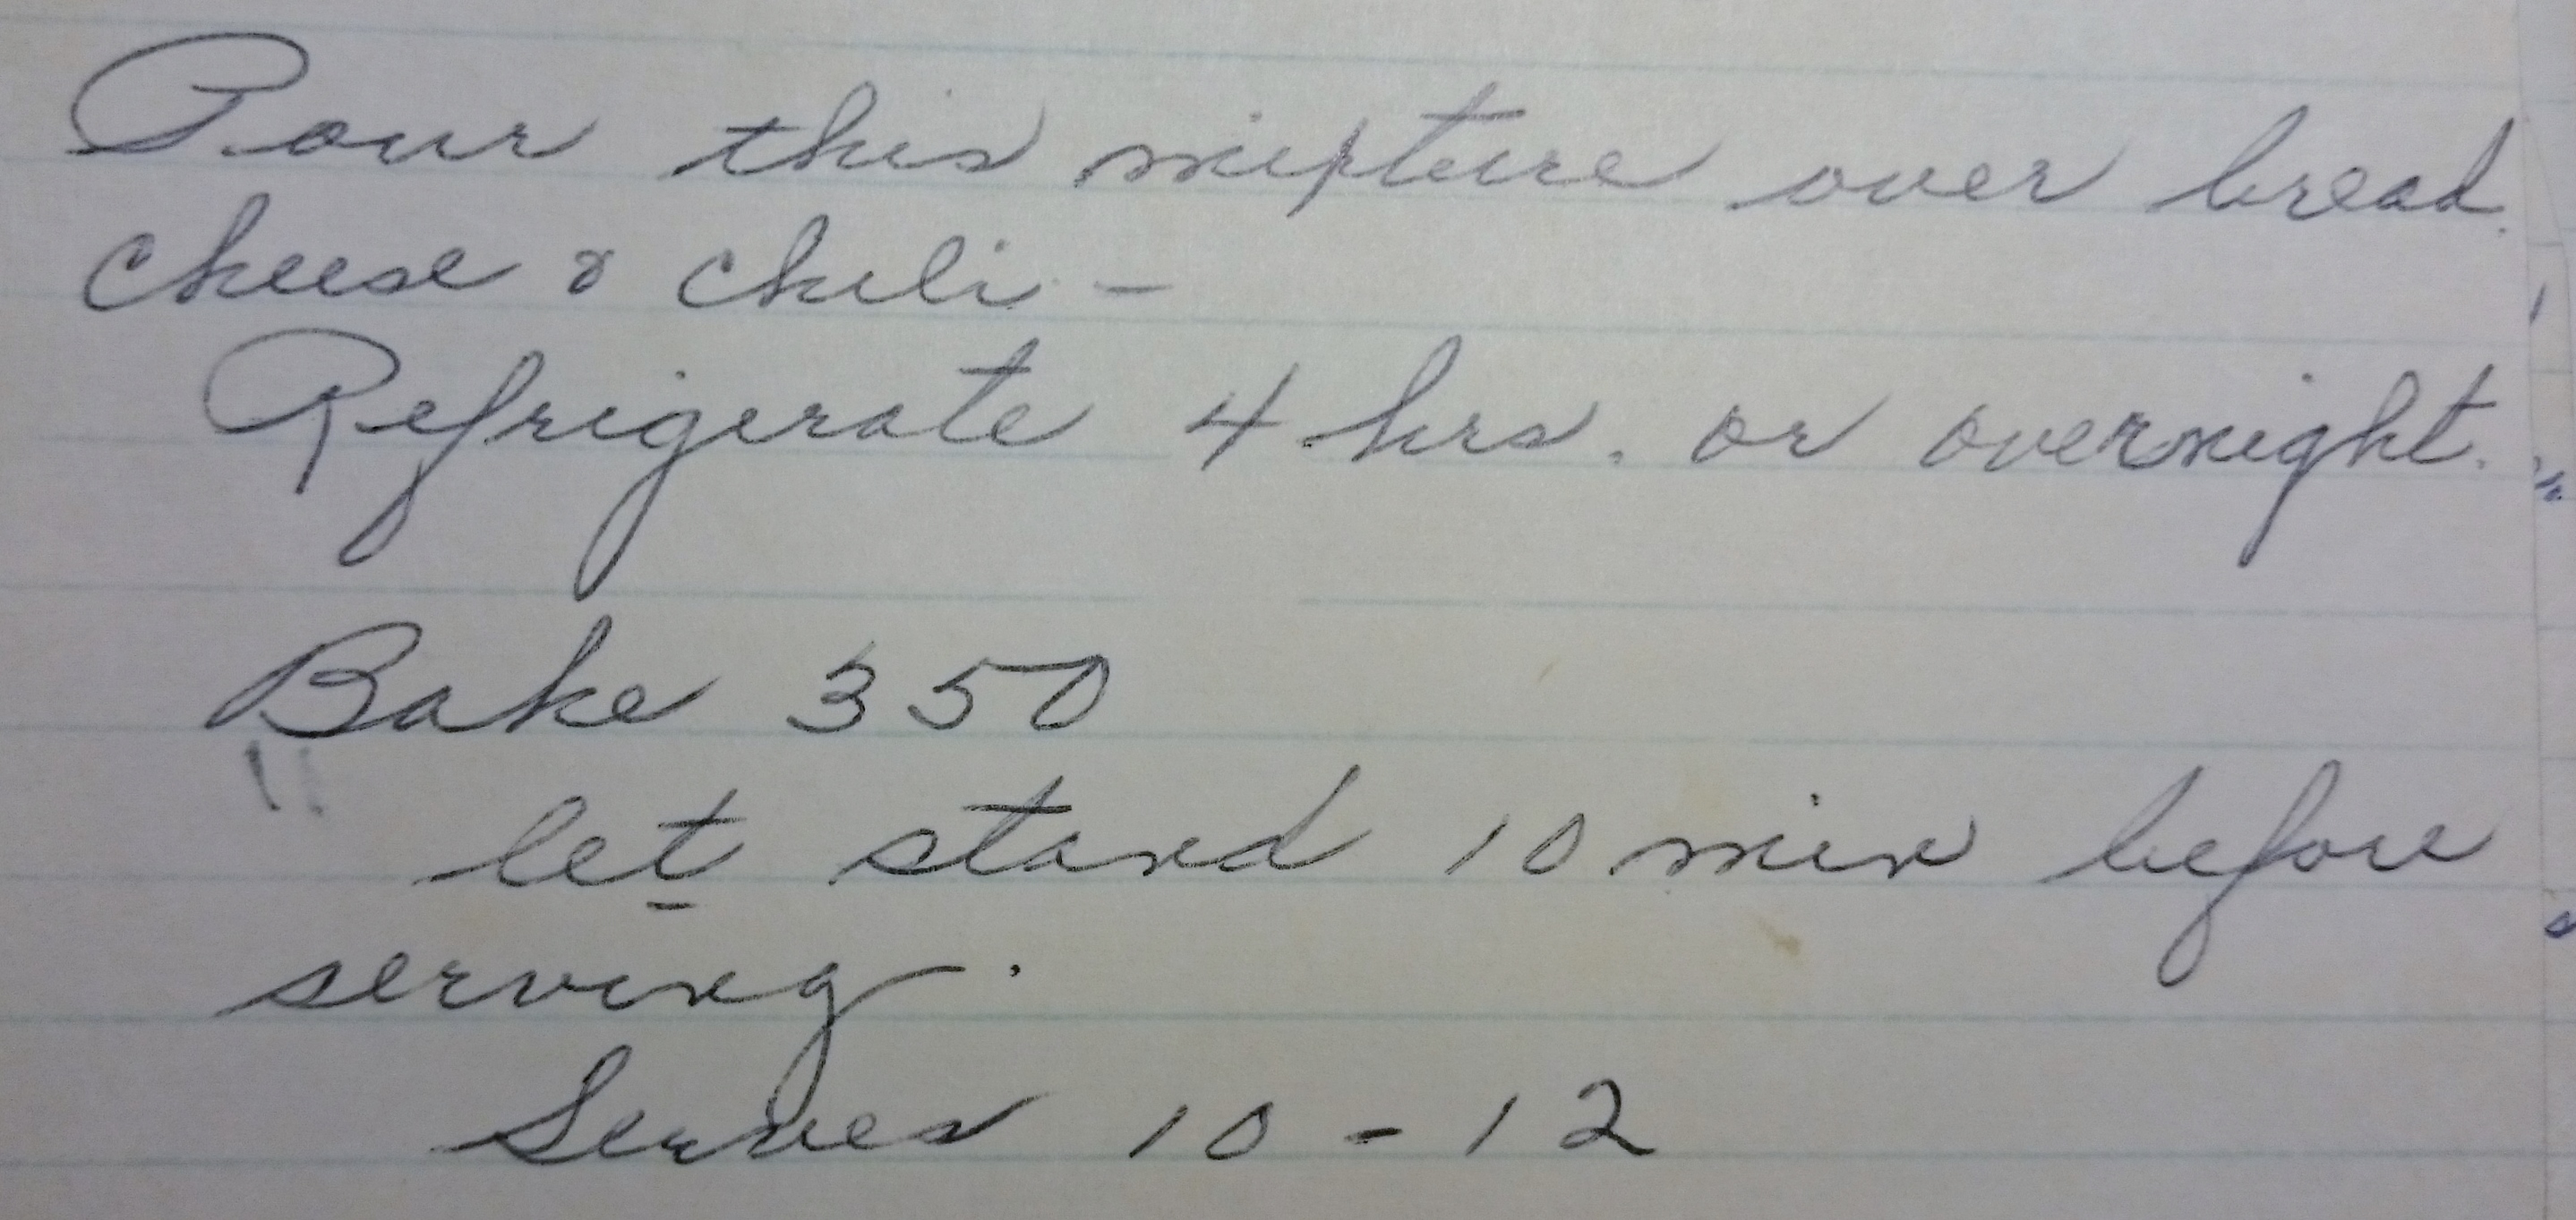 Pour this mixture over bread.
cheese & chili -
Refrigerate 4 hrs. or overnight.
Bake 350
"
let stand 10 min before
serving.
Serves 10 - 12